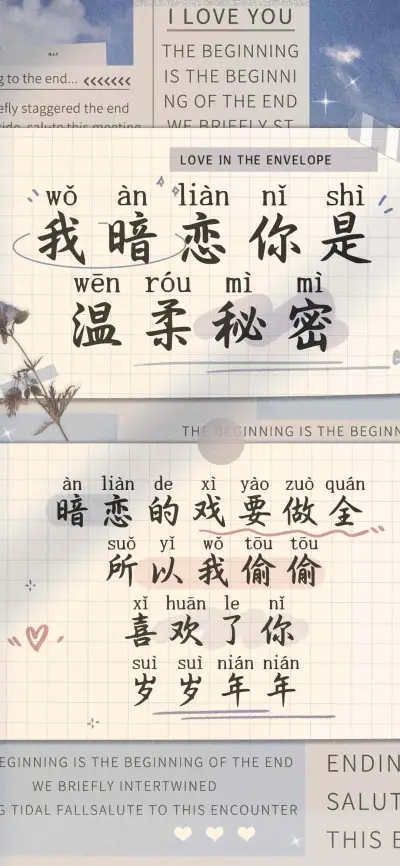 I LOVE YOU
THE BEGINNING
IS THE BEGINNI
NG OF THE END
WE BRIEFLY ST
g to the end... ‹‹‹‹‹‹‹
efly staggered the end
ide, salute this meeting
LOVE IN THE ENVELOPE
wǒ àn liàn nǐ shì
我暗恋你是
wēn róu mì mì
温柔秘密
THE BEGINNING IS THE BEGINN
àn liàn de xì yào zuò quán
暗恋的戏要做全
suǒ yǐ wǒ tōu tōu
所以我偷偷
xǐ huān le nǐ
喜欢了你
suì suì nián nián
岁岁年年
EGINNING IS THE BEGINNING OF THE END
WE BRIEFLY INTERTWINED
G TIDAL FALLSALUTE TO THIS ENCOUNTER
ENDIN
SALUT
THIS E